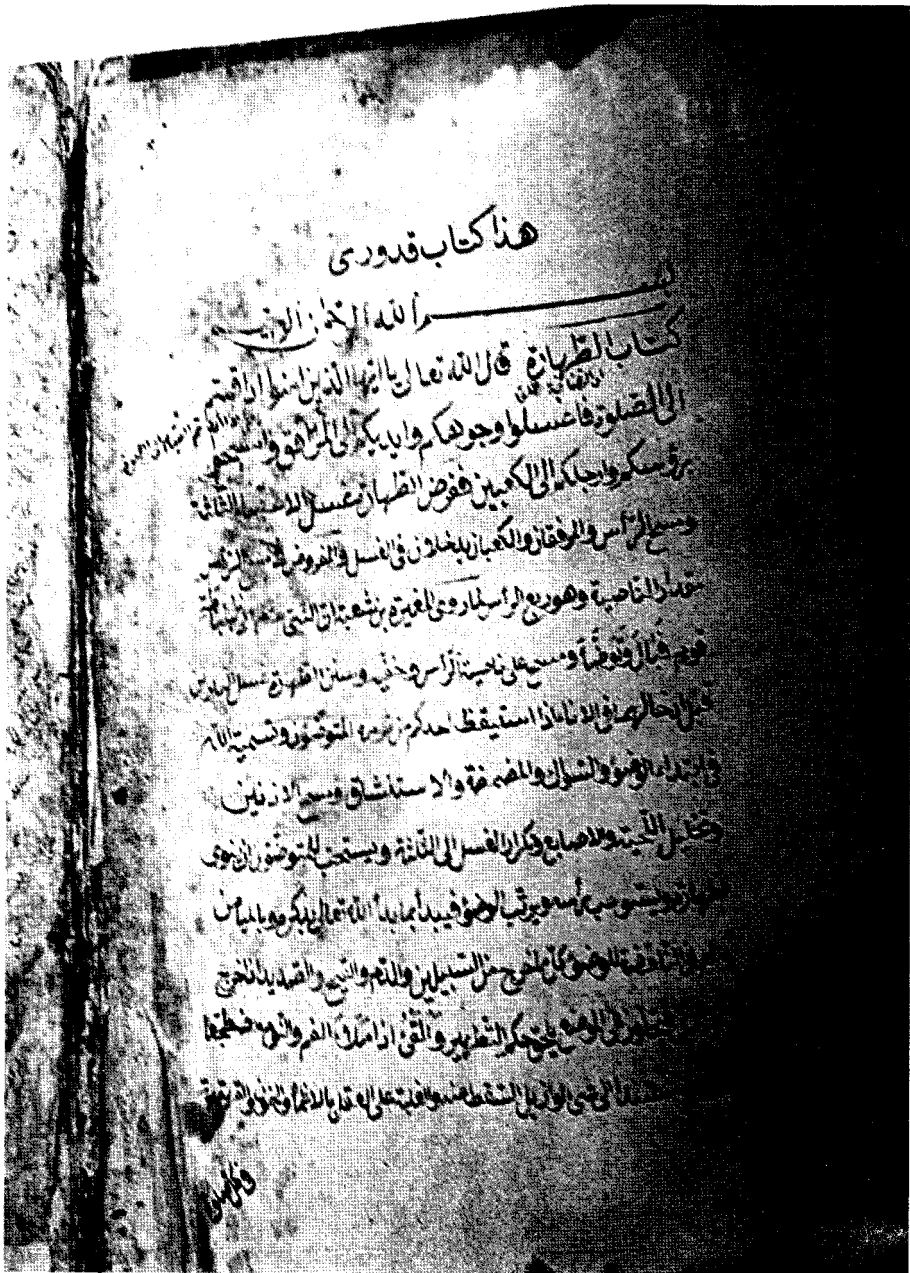 هذا كتاب قدوري
بسم الله الرحمن الرحيم
كتاب الطهارة قال الله تعالى يا ايها الذين امنوا اذا قمتم
الى الصلوة فاغسلوا وجوهكم وايديكم الى المرافق وامسحوا
برؤسكم وارجلكم الى الكعبين ففرض الطهارة غسل الاعضاء الثلثة
ومسح الرأس والمرفقان والكعبان يدخلان في الغسل والمفروض في مسح الرأس
مقدار الناصية وهو ربع الرأس لما روى المغيرة بن شعبة ان النبي
قوم فبال وتوضأ ومسح على ناصية الرأس وخفيه وسنن الطهارة غسل اليدين
قبل ادخالهما في الاناء اذا استيقظ احدكم من نومه المتوضئ وتسمية الله
في ابتداء الوضوء والسواك والمضمضة والاستنشاق ومسح الاذنين
وتخليل اللحية والاصابع وتكرار الغسل الى الثلثة ويستحب للمتوضئ ان ينوى
الطهارة ويستوعب رأسه ويرتب الوضوء فيبدأ بما بدأ الله تعالى بذكره وبالميامن
الناقضة للوضوء كل ما خرج من السبيلين والدم والقيح والصديد اذا خرج
الى موضع يلحقه حكم التطهير والقئ اذا ملأ الفم والنوم مضطجعا
الى شئ لو ازيل لسقط عنه والغلبة على العقل بالاغماء والجنون والقهقهة